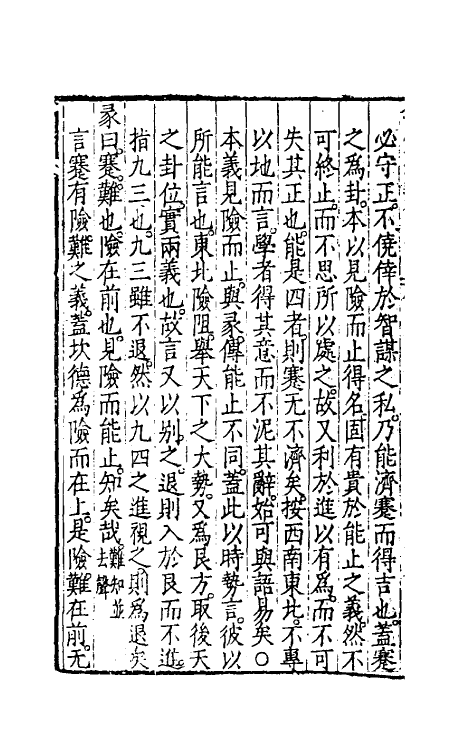 必守正不僥倖於智謀之私乃能濟蹇而得吉也蓋蹇
之為卦本以見險而止得名固有貴於能止之義然不
可終止而不思所以處之故又利於進以有為而不可
失其正也能是四者則蹇无不濟矣按西南東北不專
以地而言學者得其意而不泥其辭始可與語易矣○
本義見險而止與彖傳能止不同蓋此以時勢言彼以
所能言也東北險阻舉天下之大勢又為艮方取後天
之卦位實兩義也故言又以别之退則入於艮而不進
指九三也九三雖不退然以九四之進視之則為退矣
彖曰蹇難也險在前也見險而能止知矣哉難知並去聲
言蹇有險難之義蓋坎德為險而在上是險難在前无